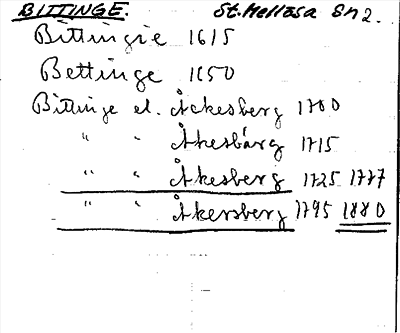 BITTINGE. St. Mellösa Sn 2.
Bittingie 1615
Bettinge 1650
Bittinge el. Åckesberg 1700
" " Åkesbärg 1715
" " Åkesberg 1725 1777
" " Åkersberg 1795 1880